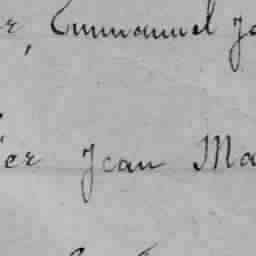 r, Emmanuel Jo
ier Jean Ma